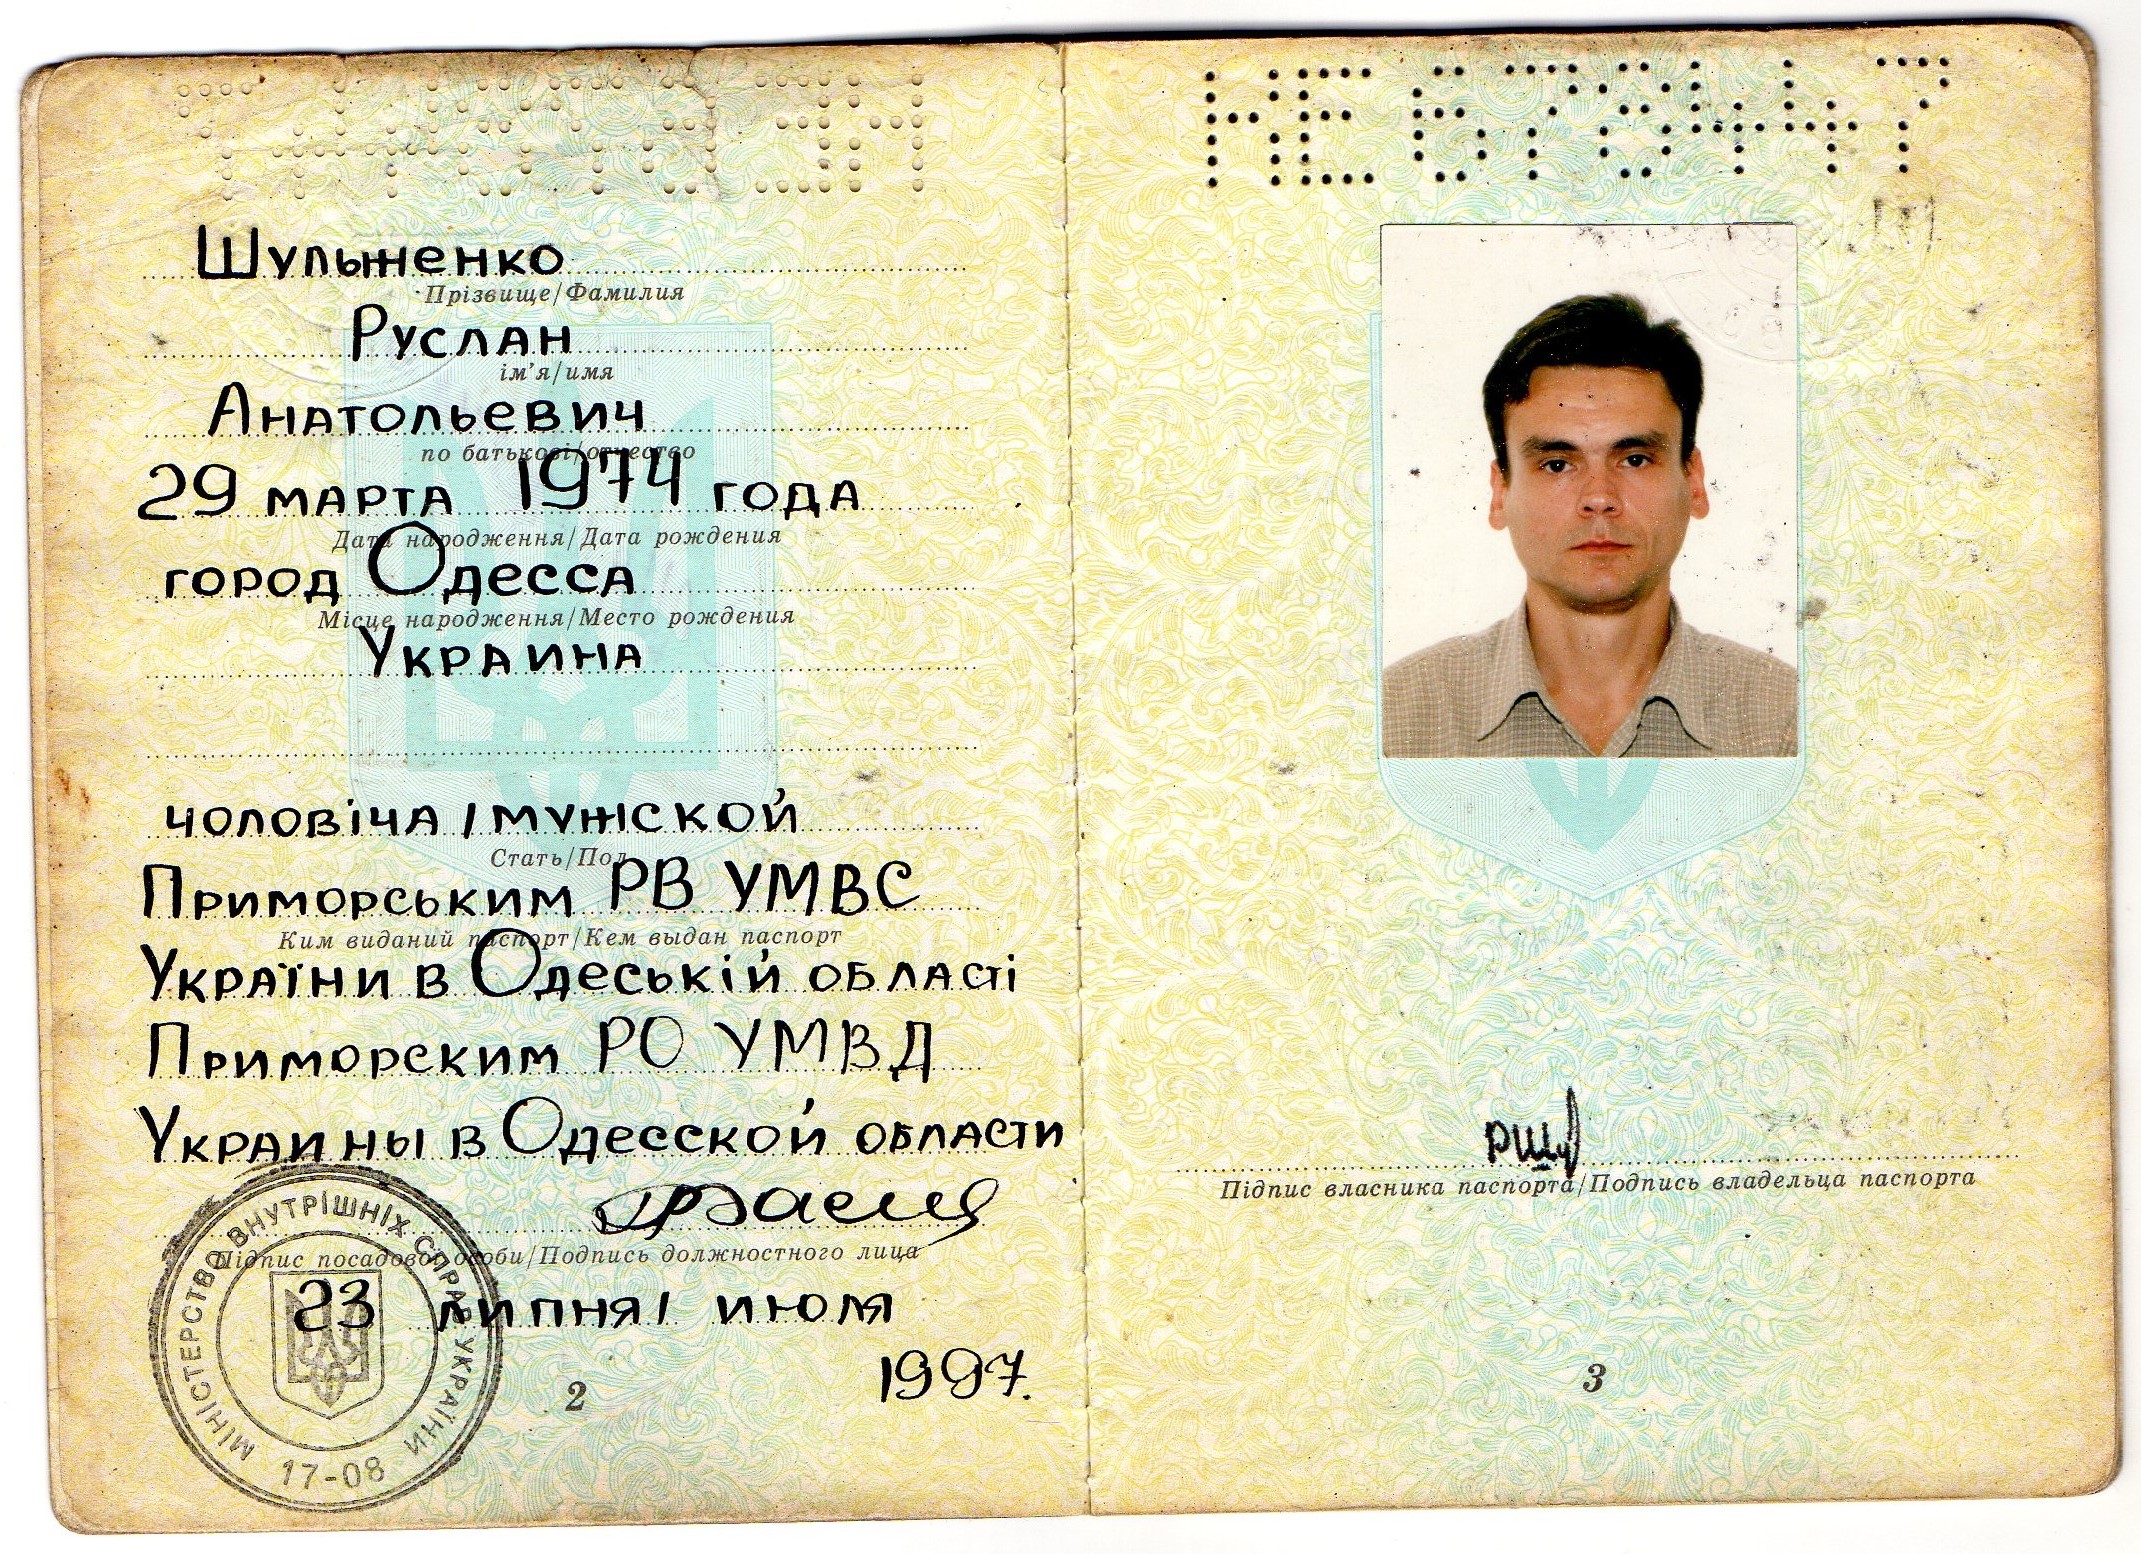 Шульженко
Прізвище/Фамилия
Руслан
ім'я/имя
Анатольевич
по батькові/отчество
29 марта 1974 года
Дата народження/Дата рождения
город Одесса
Місце народження/Место рождения
Украина
чоловіча / мужской
Стать/Пол
Приморським РВ УМВС
Ким виданий паспорт/Кем выдан паспорт
України в Одеській області
Приморским РО УМВД
Украины в Одесской области
Підпис посадової особи/Подпись должностного лица
23 липня / июля
1997.
МІНІСТЕРСТВО ВНУТРІШНІХ СПРАВ УКРАЇНИ
17-08
2
РШу
Підпис власника паспорта/Подпись владельца паспорта
3